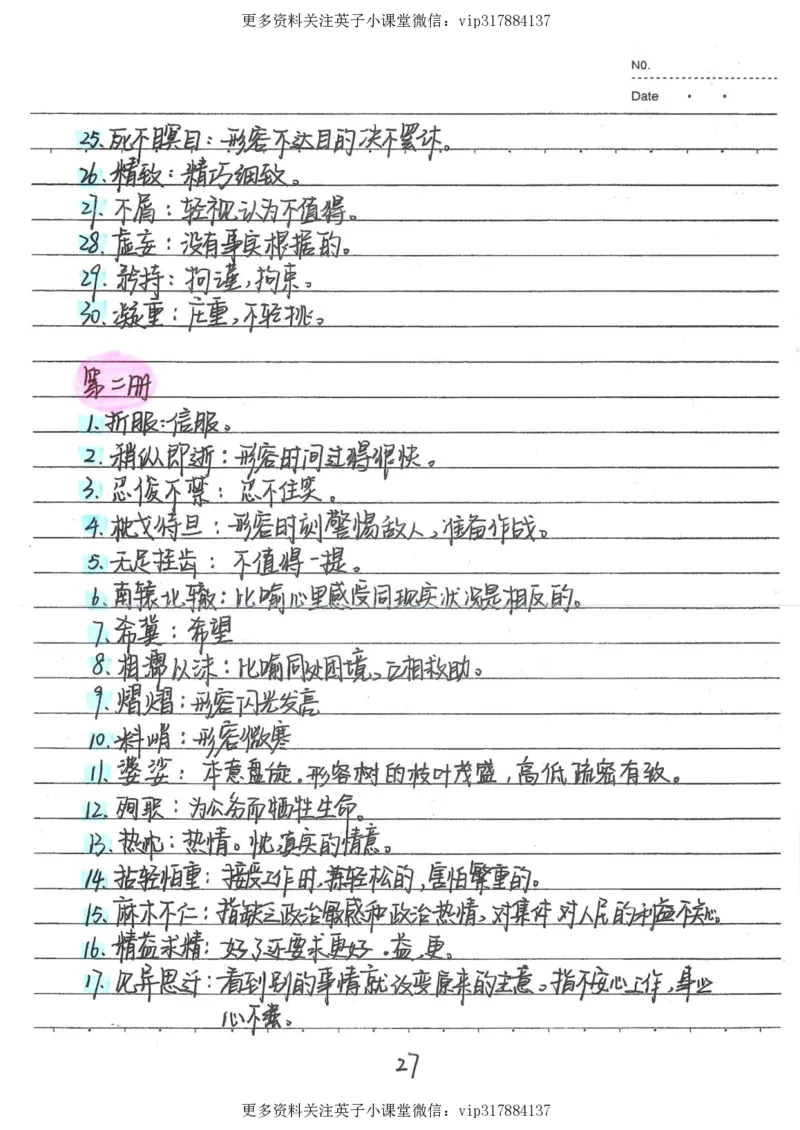 更多资料关注英子小课堂微信：vip317884137
NO.
Date
25.死不瞑目：形容不达目的决不罢休。
26.精致：精巧细致。
27.不屑：轻视,认为不值得。
28.虚妄：没有事实根据的。
29.矜持：拘谨,拘束。
30.凝重：庄重,不轻挑。
第二册
1.折服：信服。
2.稍纵即逝：形容时间过得很快。
3.忍俊不禁：忍不住笑。
4.枕戈待旦：形容时刻警惕敌人,准备作战。
5.无足挂齿：不值得一提。
6.南辕北辙：比喻心里感受同现实状况是相反的。
7.希冀：希望
8.相濡以沫：比喻同处困境,互相救助。
9.熠熠：形容闪光发亮
10.料峭：形容微寒
11.婆娑：本意盘旋.形容树的枝叶茂盛,高低疏密有致。
12.殉职：为公务而牺牲生命。
13.热忱：热情。忱,真实的情意。
14.拈轻怕重：接受工作时,拣轻松的,害怕繁重的。
15.麻木不仁：指缺乏政治敏感和政治热情,对集体对人民的利益不关心。
16.精益求精：好了还要求更好.益,更。
17.见异思迁：看到别的事情就改变原来的主意。指不安心工作,事业
心不专。
27
更多资料关注英子小课堂微信：vip317884137